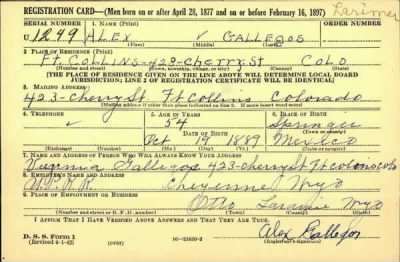 Larimer
REGISTRATION CARD—(Men born on or after April 28, 1877 and on or before February 16, 1897)
SERIAL NUMBER 1. NAME (Print) ORDER NUMBER
U 1249 ALEX ✓ GALLEGOS
(First) (Middle) (Last)
2. PLACE OF RESIDENCE (Print)
Ft. COLLINS-423-CHERRY.St COLO
(Number and street) (Town, township, village, or city) (County) (State)
[THE PLACE OF RESIDENCE GIVEN ON THE LINE ABOVE WILL DETERMINE LOCAL BOARD
JURISDICTION; LINE 2 OF REGISTRATION CERTIFICATE WILL BE IDENTICAL]
3. MAILING ADDRESS
423-Cherry St Ft Collins Colorado
[Mailing address if other than place indicated on line 2. If same insert word same]
4. TELEPHONE 5. AGE IN YEARS 6. PLACE OF BIRTH
✓ 54
DATE OF BIRTH (Town or county)
Oct 19 1889 Mexico
(Exchange) (Number) (Mo.) (Day) (Yr.) (State or country)
7. NAME AND ADDRESS OF PERSON WHO WILL ALWAYS KNOW YOUR ADDRESS
Gallegos 423-cherry st Ft colons colo
8. EMPLOYER'S NAME AND ADDRESS
U.P.R.R. Cheyenne Wyo
9. PLACE OF EMPLOYMENT OR BUSINESS
Otto Laramie Wyo
(Number and street or R. F. D. number) (Town) (County) (State)
I AFFIRM THAT I HAVE VERIFIED ABOVE ANSWERS AND THAT THEY ARE TRUE.
D. S. S. Form 1
(Revised 4-1-42) (over) 16—21630-2 Alex Gallegos
(Registrant's signature)